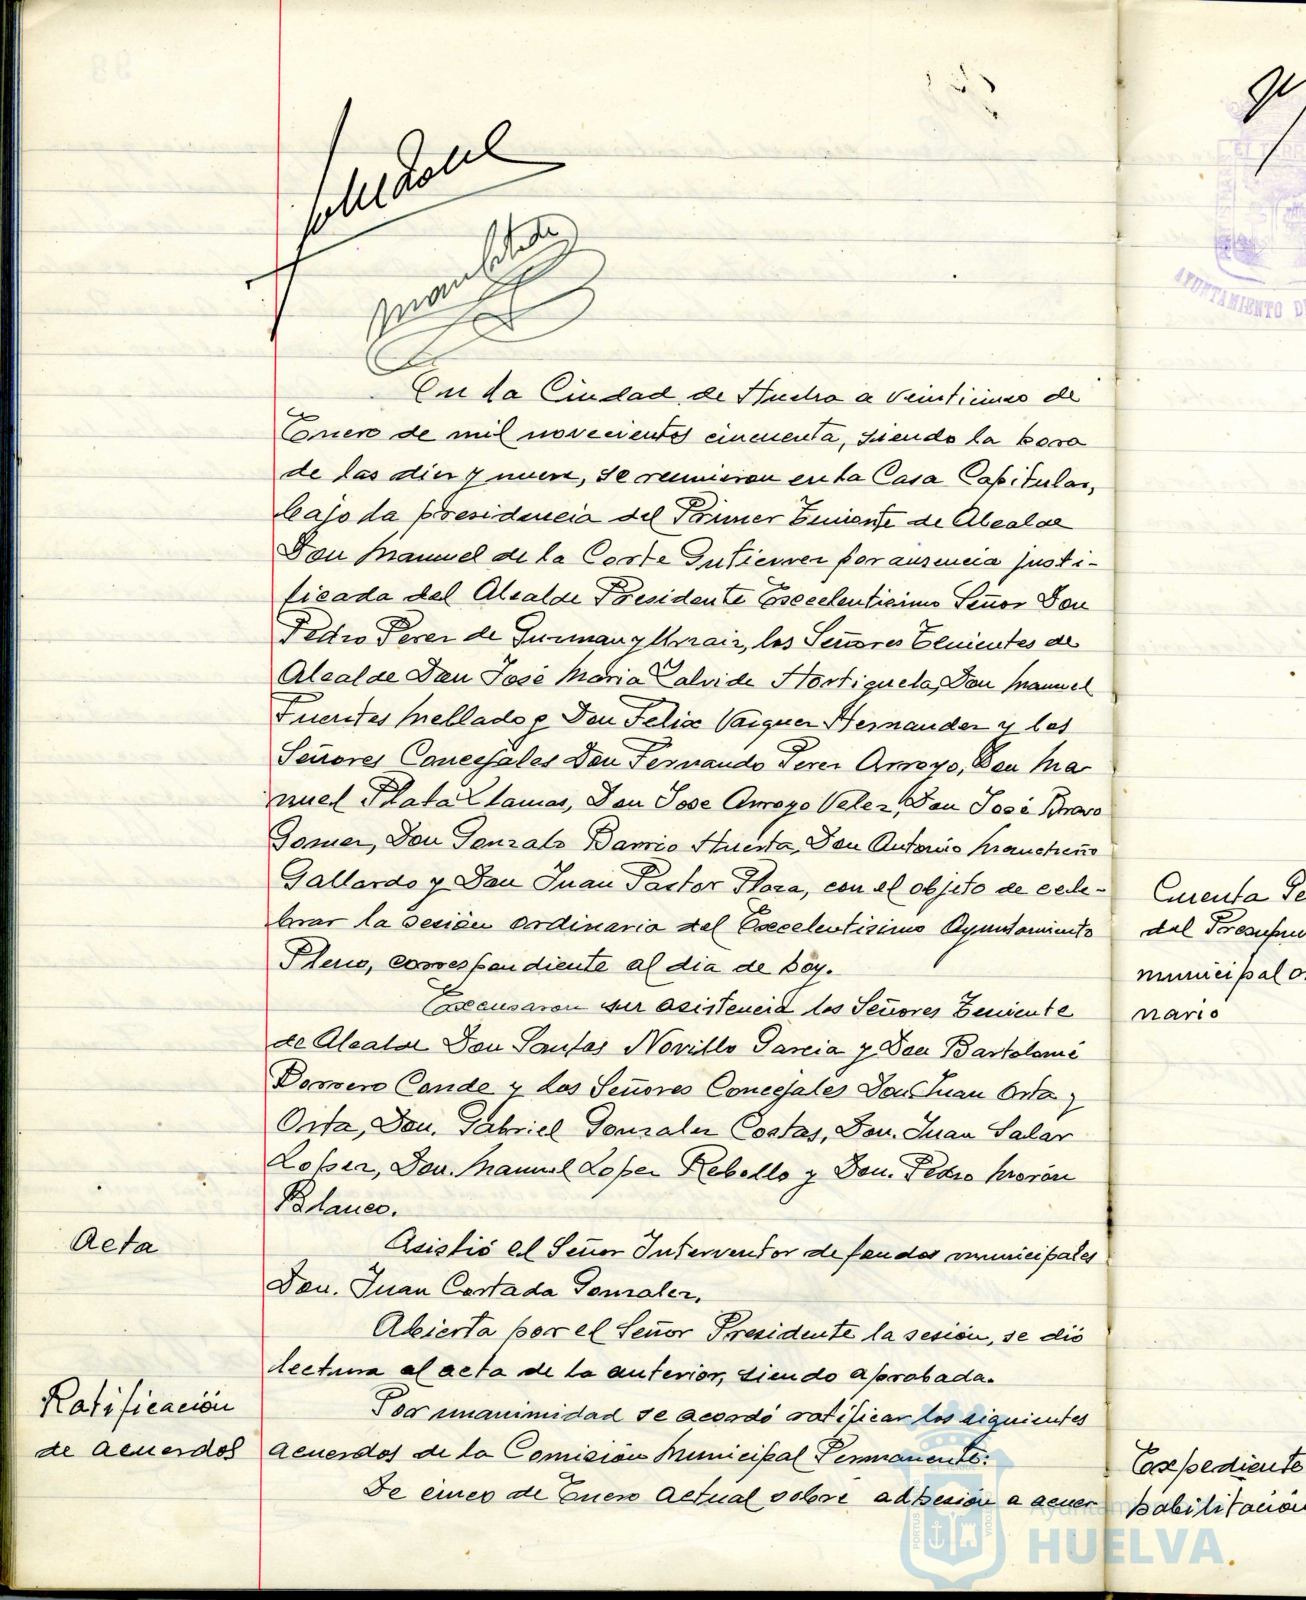 En la Ciudad de Huelva a veinticinco de
Enero de mil novecientos cincuenta, siendo la hora
de las diez y nueve, se reunieron en la Casa Capitular,
bajo la presidencia del Primer Teniente de Alcalde
Don Manuel de la Corte Gutierrez por ausencia justi-
ficada del Alcalde Presidente Excelentisimo Señor Don
Pedro Perez de Guzman y Urzaiz, los Señores Tenientes de
Alcalde Don José Maria Zalvide Hortiguela, Don Manuel
Fuentes Mellado y Don Felix Vazquez Hernandez y los
Señores Concejales Don Fernando Perez Arroyo, Don Ma
nuel Plata Llamas, Don Jose Arroyo Velez, Don José Bravo
Gomez, Don Gonzalo Barrio Huerta, Don Antonio Mancheño
Gallardo y Don Juan Pastor Plaza, con el objeto de cele-
brar la sesión ordinaria del Excelentisimo Ayuntamiento
Pleno, correspondiente al dia de hoy.
Excusaron su asistencia los Señores Teniente
de Alcalde Don Santos Novillo Garcia y Don Bartolomé
Borrero Conde y los Señores Concejales Don Juan Orta y
Orta, Don. Gabriel Gonzalez Costas, Don. Juan Salar
Lopez, Don. Manuel Lopez Rebollo y Don. Pedro Morón
Blanco.
Acta
Asistió el Señor Interventor de fondos municipales
Don. Juan Cortada Gonzalez.
Abierta por el Señor Presidente la sesión, se dió
lectura al acta de la anterior, siendo aprobada.
Ratificación
de acuerdos
Por unanimidad se acordó ratificar los siguientes
acuerdos de la Comisión Municipal Permanente:
De cinco de Enero actual sobre adhesión a acuer
AYUNTAMIENTO D
Cuenta Ge
del Presupu
municipal o
nario
Expediente
habilitación
Ayuntam
HUELVA